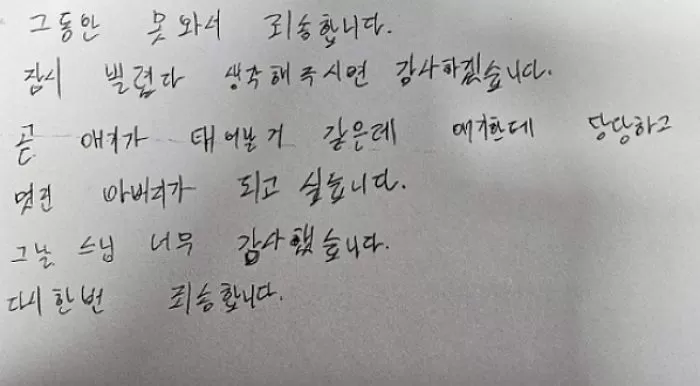 그동안 못 와서 죄송합니다.
잠시 빌렸다 생각해주시면 감사하겠습니다.
곧 애기가 태어날 거 같은데 애기한테 당당하고
멋진 아버지가 되고 싶습니다.
그날 스님 너무 감사했습니다.
다시 한번 죄송합니다.